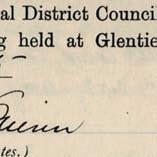 al District Council
g held at Glentie
tes.)